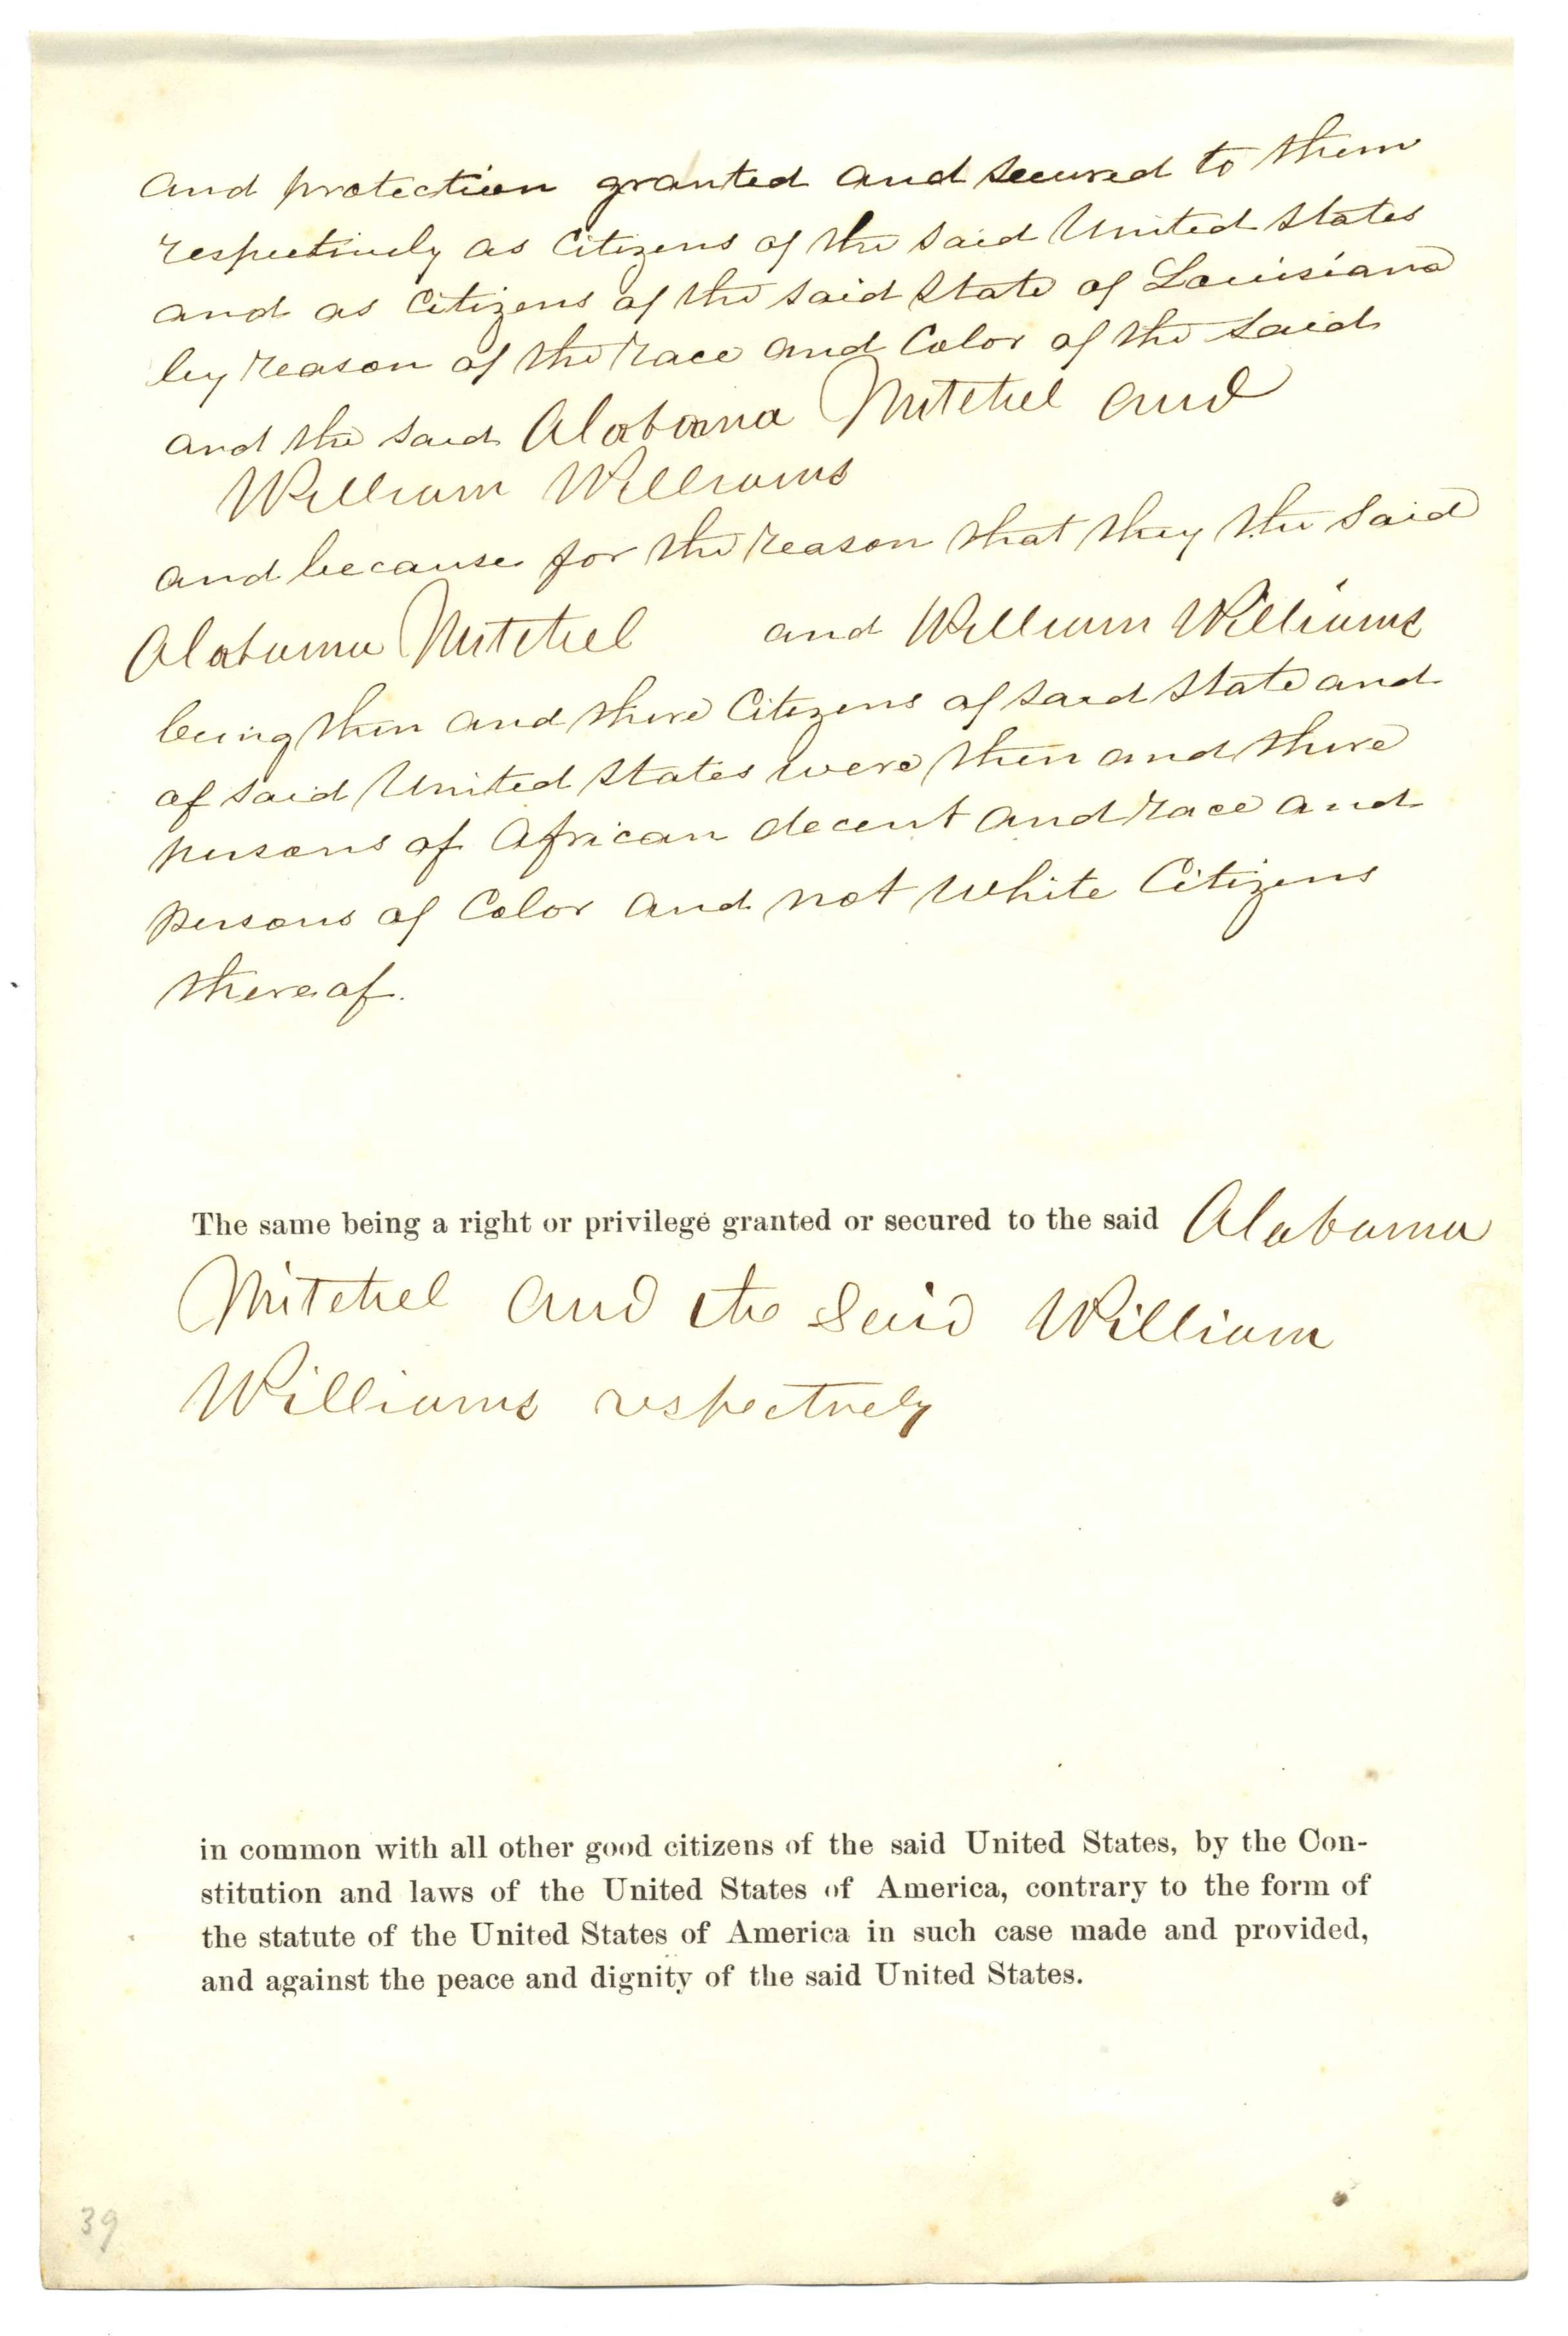 and protection granted and secured to them
respectively as Citizens of the said United States
and as Citizens of the said State of Louisiana
by reason of the race and Color of the said
and the said Alabama Mitchel and
William Williams
and because for the reason that they the said
Alabama Mitchel and William Williams
being then and there Citizens of said State and
of said United States were then and there
persons of African decent and race and
persons of Color and not white Citizens
thereof.
The same being a right or privilege granted or secured to the said Alabama
Mitchel and the said William
Williams respectively
in common with all other good citizens of the said United States, by the Con-
stitution and laws of the United States of America, contrary to the form of
the statute of the United States of America in such case made and provided,
and against the peace and dignity of the said United States.
39